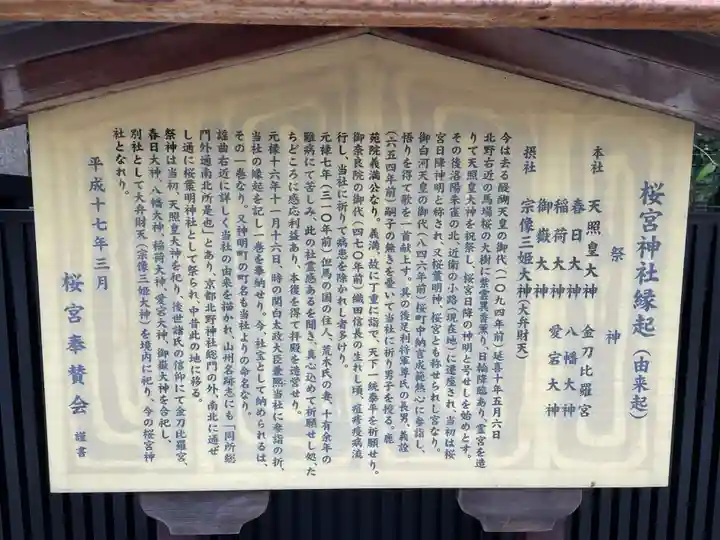 桜宮神社縁起(由来起)
祭神
本社 天照皇大神 金刀比羅宮
春日大神 八幡大神
稲荷大神 愛宮大神
御嶽大神
摂社 宗像三姫大神(大弁財天)
今は去る醍醐天皇の御代(一〇九四年前)延喜十年五月六日
北野右近の馬場桜の大樹に紫雲異香薫り、日輪降臨あり、霊宮を造
りて天照皇大神を祝祭し、桜宮日降の神明と号せしを始めとす。
その後洛陽朱雀の北、近衛の小路(現在地)に遷座され、当初は桜
宮日降神明と称され、又桜葉明神、桜宮とも称せられし宮なり。
御白河天皇の御代(八四六年前)桜町中納言成範熱心に参詣し、
悟りを得て歌を一首献上す。其の後足利将軍尊氏の長男、義詮
(六五四年前)嗣子の無きを憂いて当社に祈り男子を授る。鹿
苑院義満公なり。義満、故に丁重に詣で、天下一統泰平を祈願せり。
御奈良院の御代(四七〇年前)織田信長の生れし頃、疱疹疫病流
行し、当社に祈りて病患を除かれし者多けり。
元禄七年(三一〇年前)但馬の国の住人、荒木氏の妻、十有余年の
難病にて苦しみ、此の社霊感あるを聞き、真心込めて祈願せし処、た
ちどころに感応利益あり、本復を得て拝殿を造営せり。
元禄十六年十一月十六日、時の関白太政大臣兼熙当社に参詣の折、
当社の縁起を記し一巻を奉納せり。今、社宝として納められるは、
その一巻なり。又神明町の町名も当社よりの命名なり。
謡曲右近に詳しく当社の由来を描かれ、山州名跡志にも「同所総
門外通南北所是也」とあり、京都北野神社総門の外、南北に通ぜ
し通に桜葉明神社として祭られ、中昔此の地に移る。
祭神は当初、天照皇大神を祀り、後世諸氏の信仰にて金刀比羅宮、
春日大神、八幡大神、稲荷大神、愛宮大神、御嶽大神を合祀し、
別社として大弁財天(宗像三姫大神)を境内に祀り、今の桜宮神
社となれり。
平成十七年三月
桜宮奉賛会 謹書